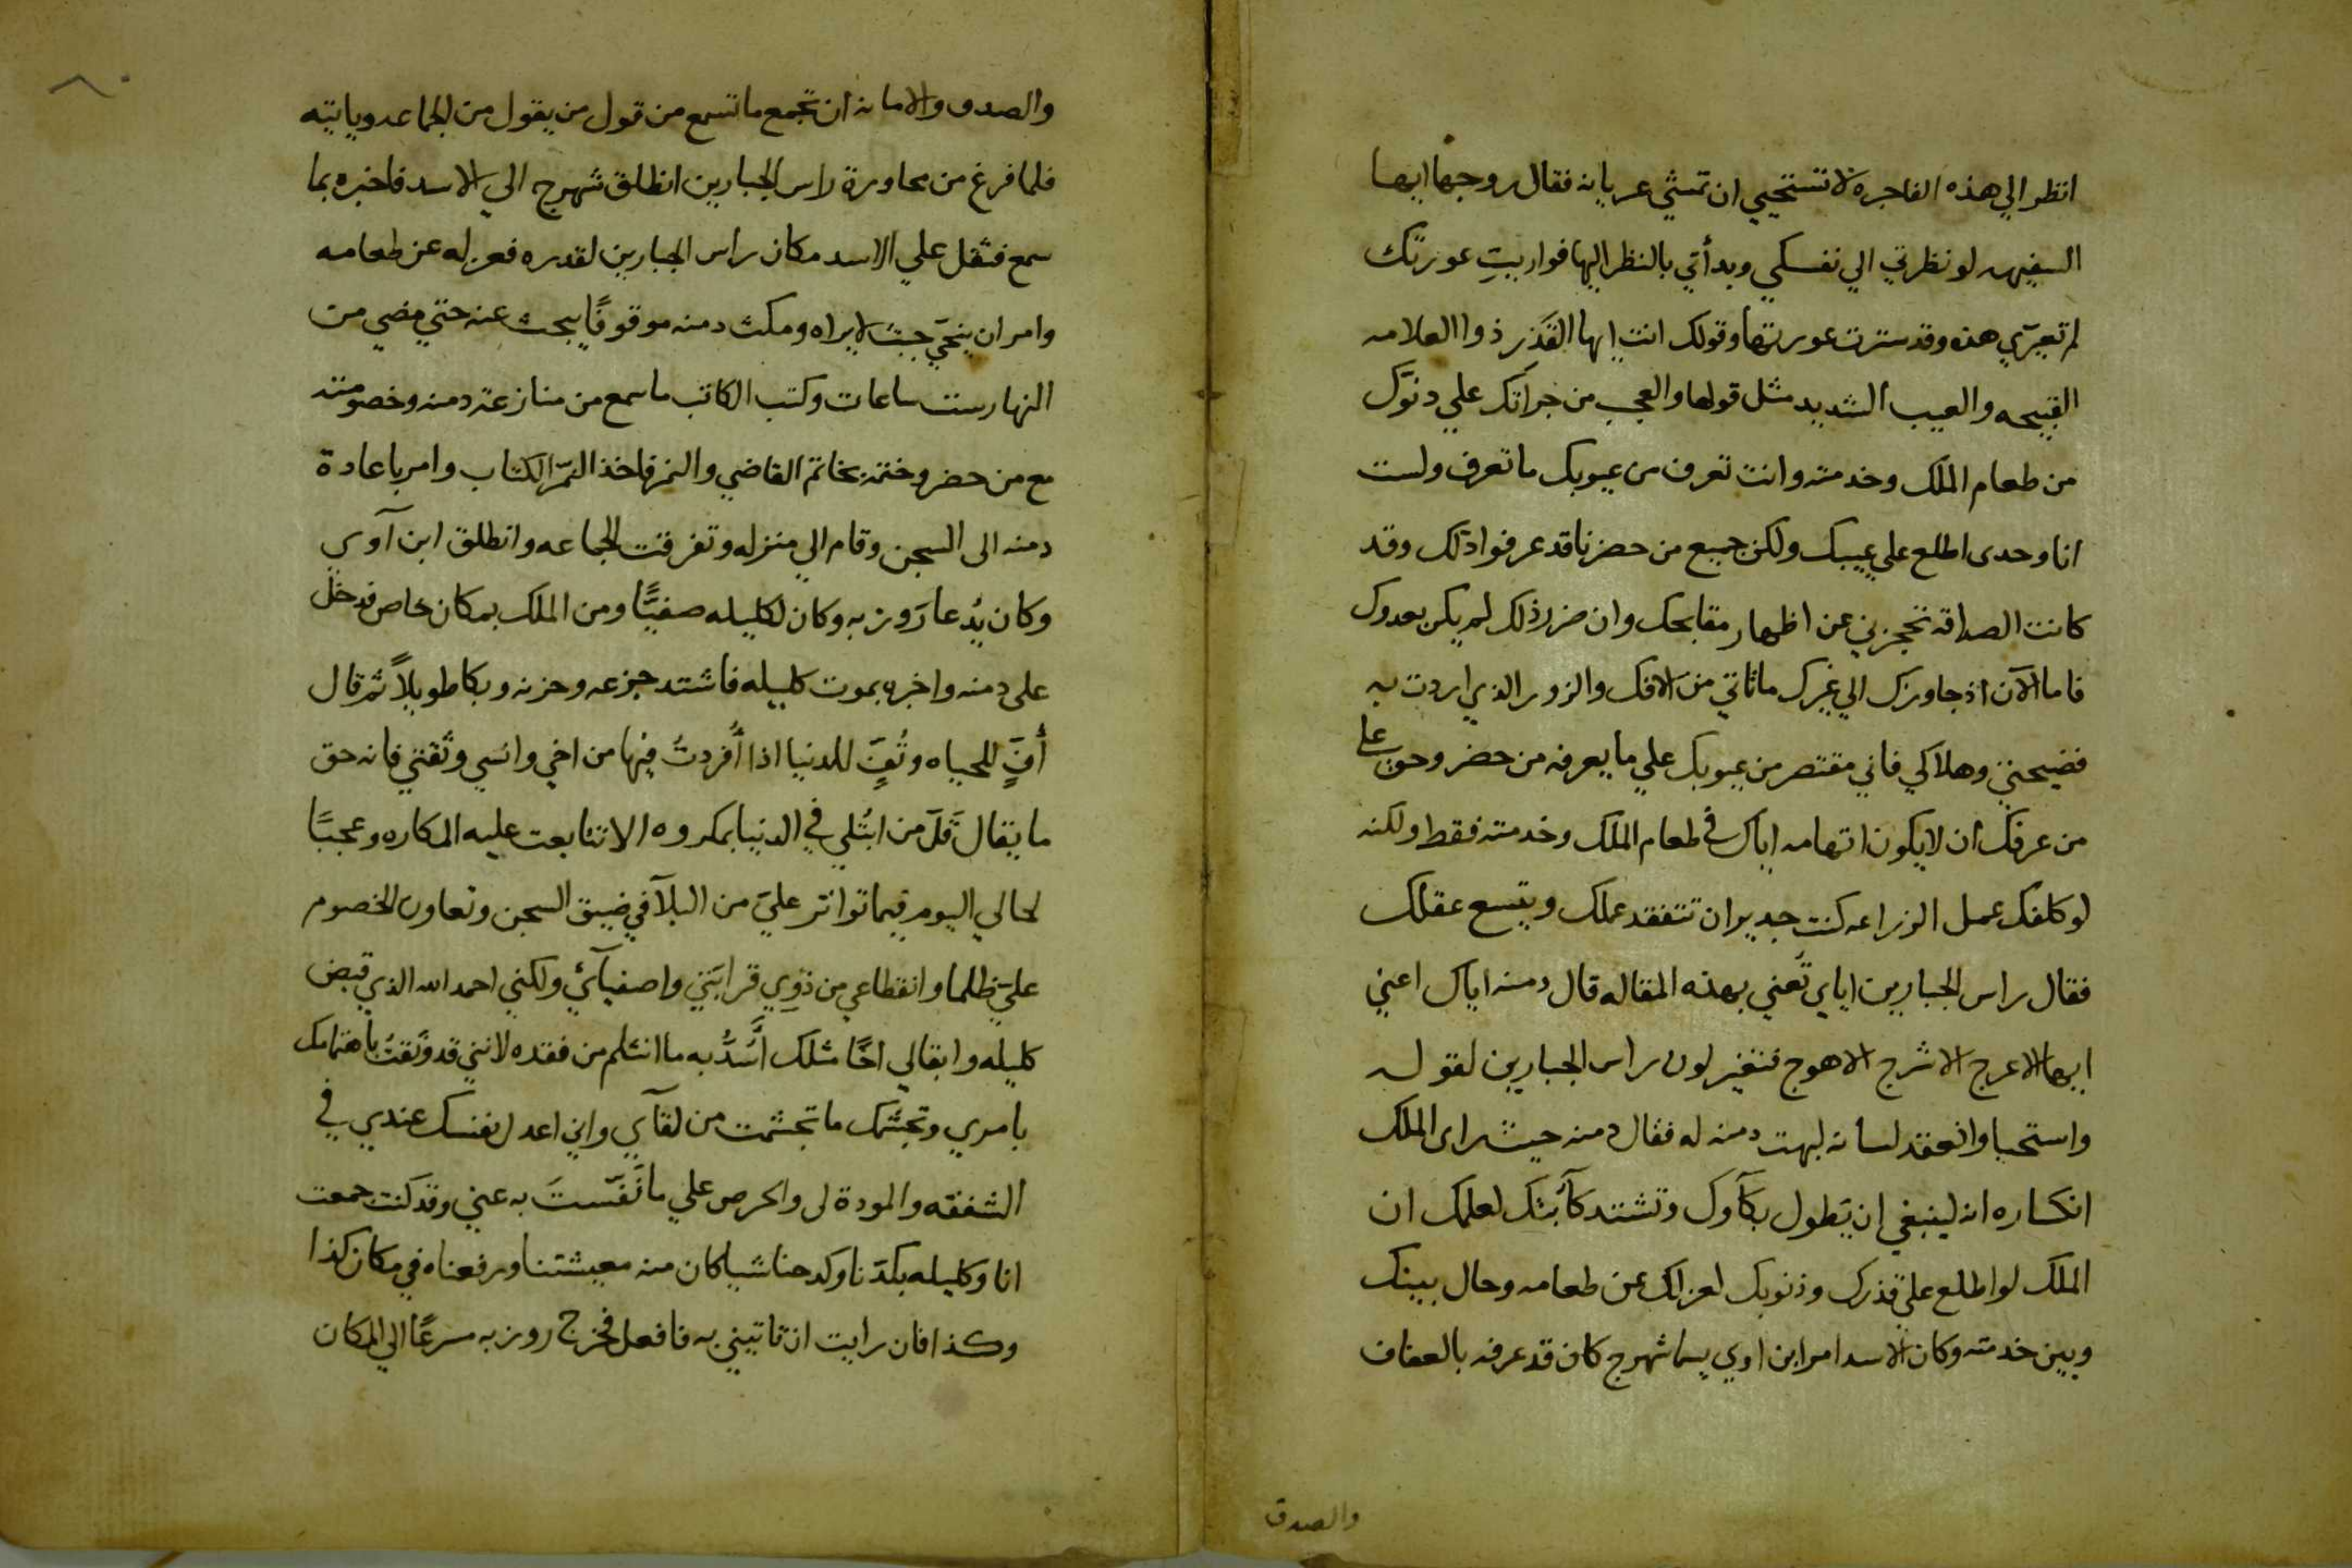 انظر الي هذه الفاجره لا تستحيي ان تمشي عريانه فقال زوجها ايها
السفيهه لو نظرتي الي نفسكي وبدأتي بالنظر اليها فواريتِ عورتك
لم تعيّري هذه وقد سترت عورتها وقولك انت ايها القَذر ذوا العلامه
القبيحه والعيب الشديد مثل قولها والعجب من جراتك علي دنوّك
من طعام الملك وخدمته وانت تعرف من عيوبك ما تعرف ولست
انا وحدى اطلع علي عيبك ولكن جميع من حضرنا قد عرفوا ذلك وقد
كانت الصداقه تحجزني عن اظهار مقابحك وان ضرر ذلك لم يكن بعدوك
فاما الآن اذ جاوزك الي غيرك ما تاتي من الافك والزور الذي اردت به
فضيحتي وهلاكي فاني مقتصر من عيوبك علي ما يعرفه من حضر وحق على
من عرفك ان لا يكون اتهامه اياك في طعام الملك وخدمته فقط ولكنه
لو كلفك عمل الزراعه كنت جدير ان تتفقد عملك ويتسع عقلك
فقال راس الجبارين اياي تَعني بهذه المقاله قال دمنه اياك اعني
ايها الاعرج الاشرج الاهوج فتغير لون راس الجبارين لقول
واستحيا وانعقد لسانه لبهت دمنه له فقال دمنه حيث راى الملك
انكساره انه لينبغي ان يَطول بكآوك وتشتد كآبتك لعلمك ان
الملك لو اطلع علي قذرك وذنوبك لعزلك عن طعامه وحال بينك
وبين خدمته وكان الاسد امر ابن اوي يسما شهرج كان قد عرفه بالعفاف
والصدق
والصدق والامانه ان تجمع ما تسمع من قول من يقول من الجماعه وياتيه
فلما فرغ من محاورة راس الجبارين انطلق شهرج الي الاسد فاخبره بما
سمع فثقل علي الاسد مكان راس الجبارين لقدره فعزله عن طعامه
وامر ان ينحّي حيث لا يراه ومكث دمنه موقوفًا يبحث عنه حتي مضي من
النهار ست ساعات وكتب الكاتب ما سمع من منازعة دمنه وخصومته
مع من حضر وختمه بخاتم القاضي والنمر فاخذ النمّر الكتاب وامر باعادة
دمنه الى السجن وقام الي منزله وتفرقت الجماعه وانطلق ابن آوي
وكان يُدعا رَوزبه وكان لكليله صفيًّا ومن الملك بمكان خاص فدخل
على دمنه واخبره بموت كليله فاشتد جزعه وحزنه وبكا طويلاً ثم قال
أُفٍّ للحياه وتُفٍّ للدنيا اذا أُفردتُ فيها من اخي وانسي وثقتي فانه حق
ما يقال قَلَّ من ابتُلي في الدنيا بمكروه الا تتابعت عليه المكاره وعجبًا
لحالي اليوم فيما تواتر عليّ من البلآ في ضيق السجن وتعاون الخصوم
عليّ ظلما وانقطاعي من ذوِي قرابتني واصفيآئي ولكني احمد الله الذي قبض
كليله وابقا لي اخًا مثلك أَسُدُّ به ما انثلم من فقده لانني قد وثقتُ باهتمامك
بامري وتجشّمك ما تجشمت من لقآي واني اعدل نفسك عندي في
الشفقه والمودة لى والحرص علي ما نَفّستَ به عني وقد كنت جمعت
انا وكليله بكدّنا وكدحنا شيا كان منه معيشتنا ورفعناه في مكان كذا
وكذا فان رايت ان تاتيني به فافعل فخرج روزبه مسرعًا الي المكان